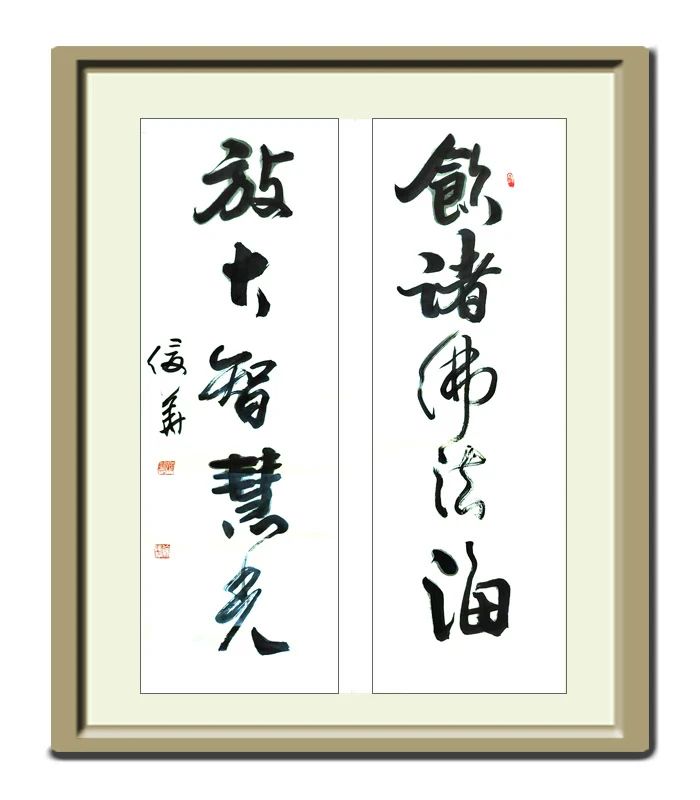 飲諸佛法海
放大智慧光
俊華